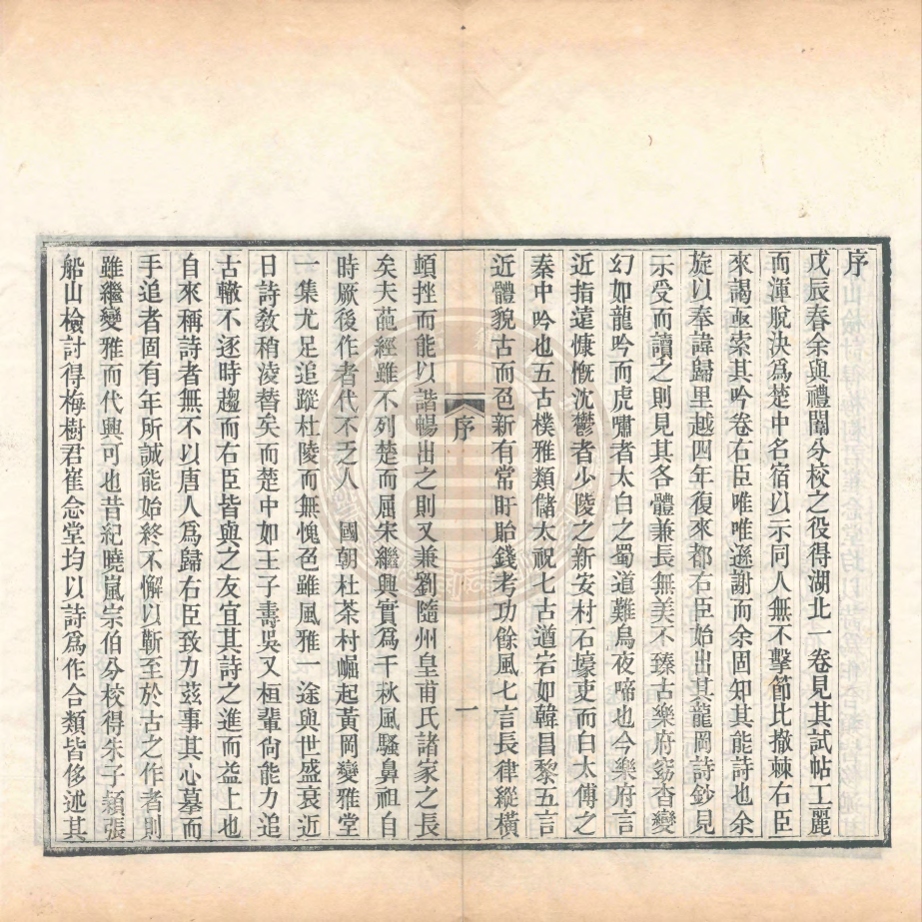 序
戊辰春余與禮闈分校之役得湖北一卷見其試帖工麗
而渾脫決爲楚中名宿以示同人無不擊節比撤棘右臣
來謁亟索其吟卷右臣唯唯遜謝而余固知其能詩也余
旋以奉諱歸里越四年復來都右臣始出其龍岡詩鈔見
示受而讀之則見其各體兼長無美不臻古樂府窈杳變
幻如龍吟而虎嘯者太白之蜀道難烏夜啼也今樂府言
近指遠慷慨沈鬱者少陵之新安村石壕吏而白太傅之
秦中吟也五古樸雅類儲太祝七古遒宕如韓昌黎五言
近體貌古而色新有常盱眙錢考功餘風七言長律縱橫
序
一
頓挫而能以諧暢出之則又兼劉隨州皇甫氏諸家之長
矣夫葩經雖不列楚而屈宋繼興實爲千秋風騷鼻祖自
時厥後作者代不乏人 國朝杜茶村崛起黃岡變雅堂
一集尤足追蹤杜陵而無愧色雖風雅一途與世盛衰近
日詩敎稍凌替矣而楚中如王子壽吳又桓輩尙能力追
古轍不逐時趨而右臣皆與之友宜其詩之進而益上也
自來稱詩者無不以唐人爲歸右臣致力茲事其心摹而
手追者固有年所誠能始終不懈以蘄至於古之作者則
雖繼變雅而代興可也昔紀曉嵐宗伯分校得朱子穎張
船山檢討得梅樹君崔念堂均以詩爲作合類皆侈述其